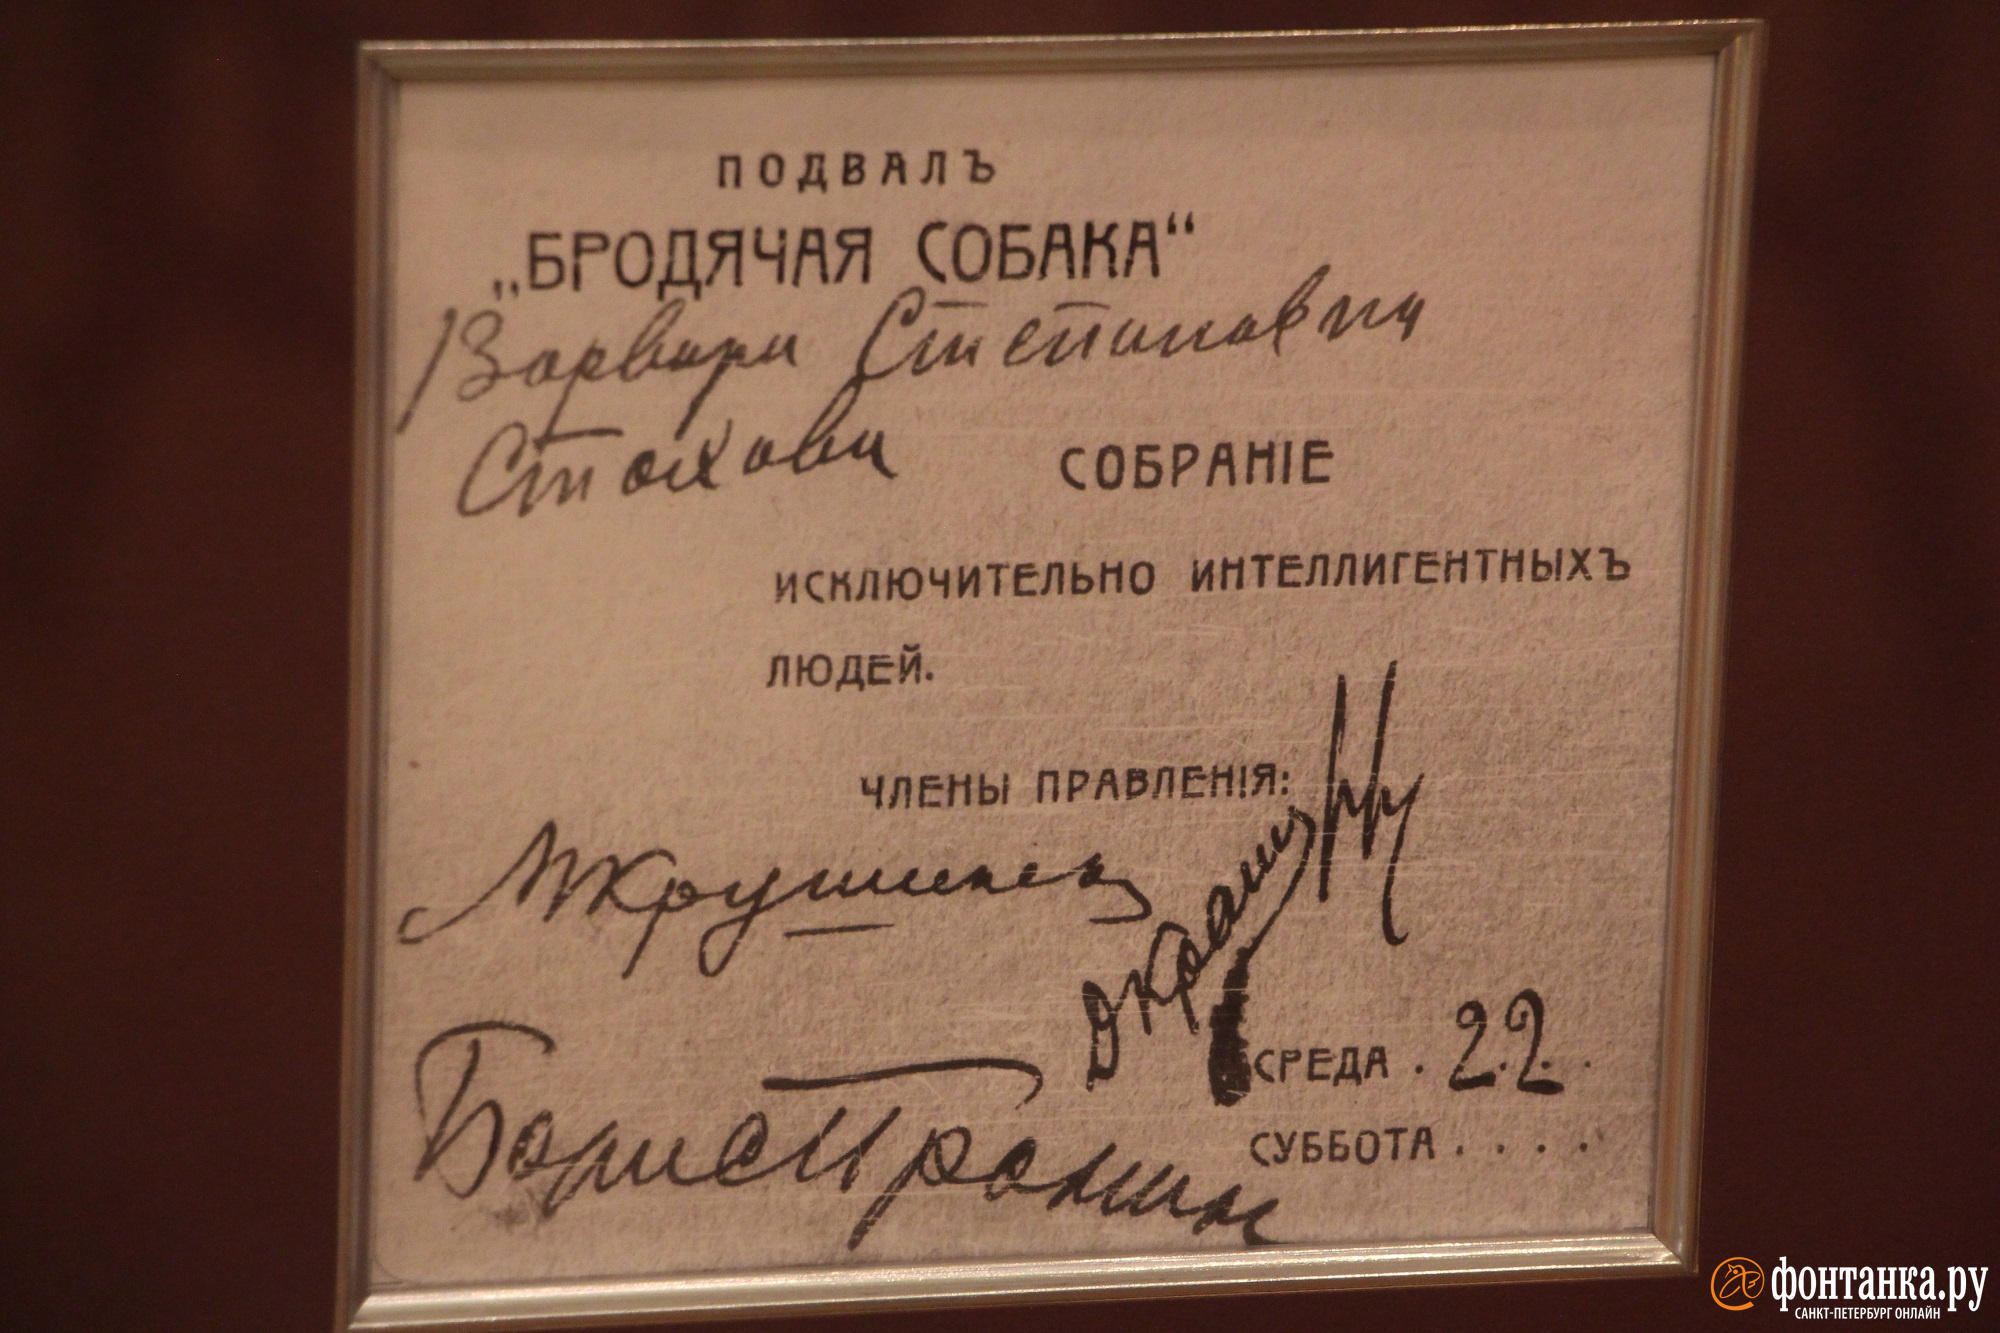 ПОДВАЛЪ
„БРОДЯЧАЯ СОБАКА“
Варвара Степановна
Стахова
СОБРАНІЕ
ИСКЛЮЧИТЕЛЬНО ИНТЕЛЛИГЕНТНЫХЪ
ЛЮДЕЙ.
ЧЛЕНЫ ПРАВЛЕНІЯ:
Борис Пронин
СРЕДА . 22. .
СУББОТА . . . .
фонтанка.ру
САНКТ-ПЕТЕРБУРГ ОНЛАЙН